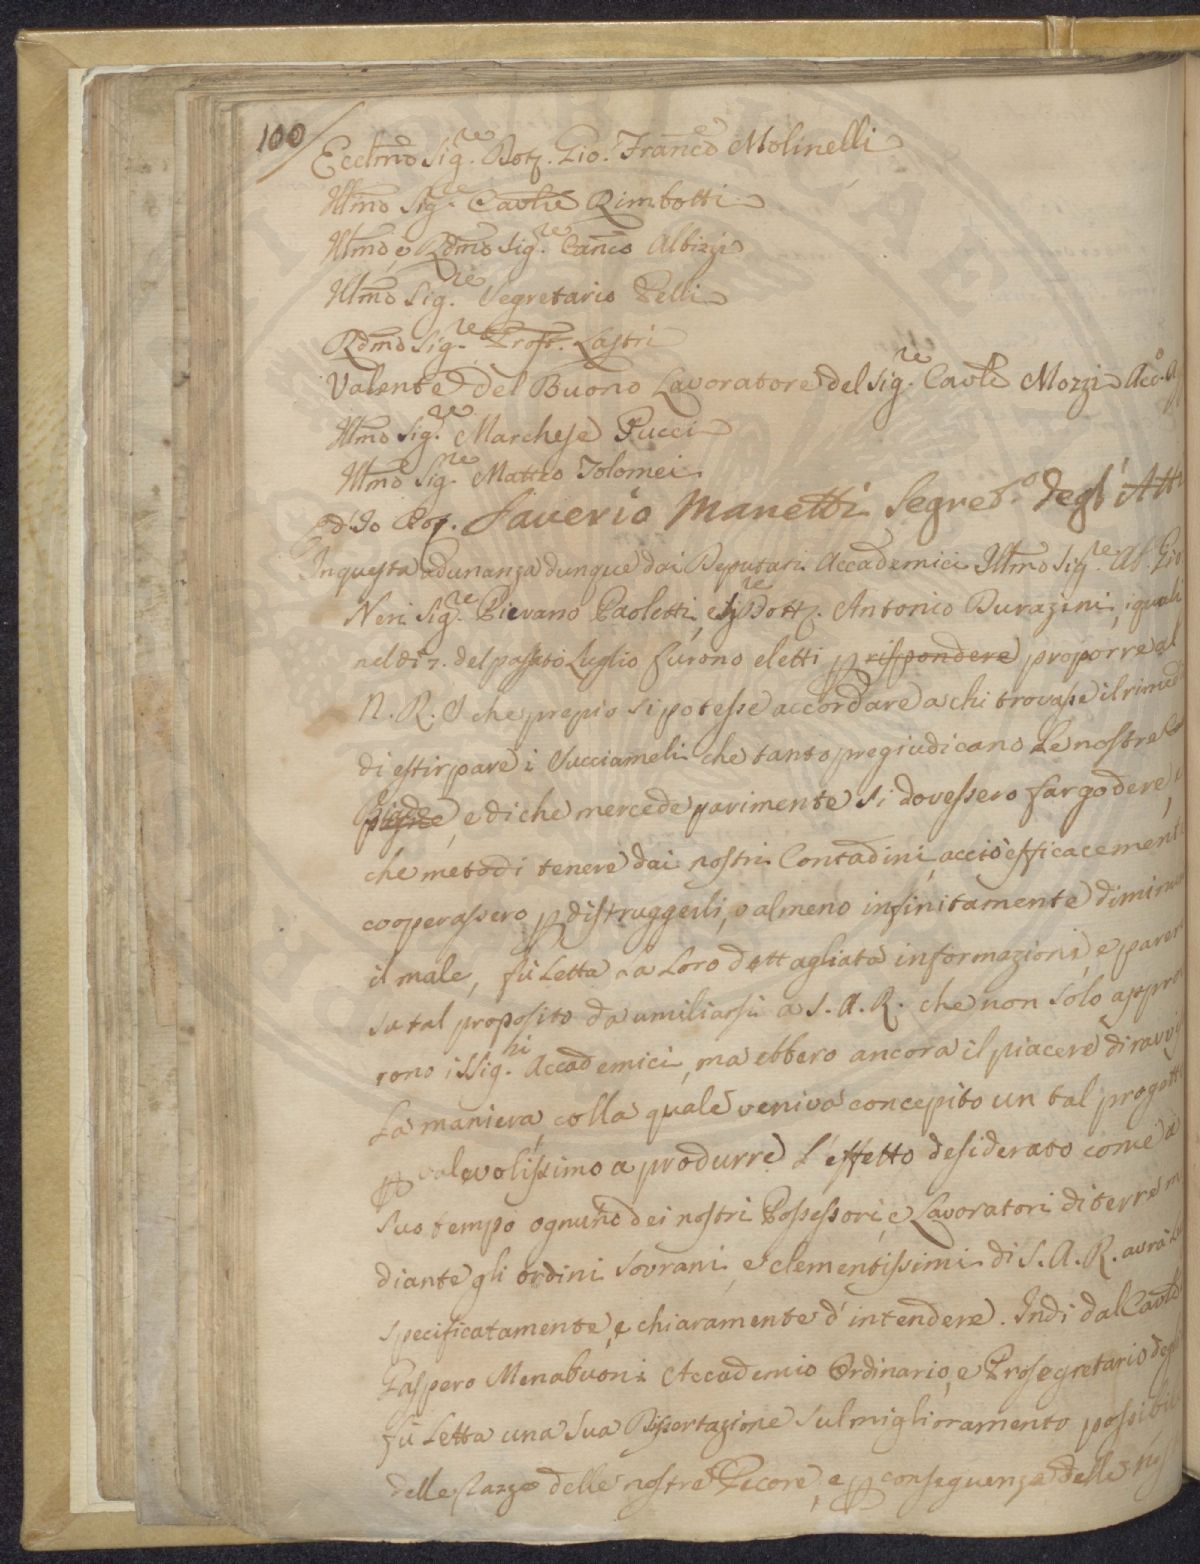 100
Ecclmo Sig.re Dott. Gio. Franco Molinelli
Illmo Sig.re Cavlre Rimbotti
Illmo, e Rdmo Sig.re Canco Albizzi
Illmo Sig.re Segretario Pelli
Rdmo Sig.re Propt. Lastri
Valente del Buono Lavoratore del Sig.re Cavlre Mozzi Acco.
Illmo Sig.re Marchese Pucci
Illmo Sig.re Matteo Tolomei
Ed Io Dott. Saverio Manetti Segret.o degl'Atti
In questa adunanza dunque dai Deputati Accademici Illmo Sig.re Ab. Gio
Neri Sig.re Pievano Paoletti, e Sig.re Dott. Antonio Durazini, i quali
nel dì 7. del passato Luglio furono eletti p rispondere proporre al
N. R. S che prepio si potesse accordare a chi trovasse il rimed
di estirpare i Succiameli che tanto pregiudicano le nostre
e di che mercede parimente si dovessero far godere,
che metodi tenere dai nostri Contadini acciò efficacement
cooperassero p distruggerli, o almeno infinitamente diminu
il male, fù letta la loro dettagliata informazioni, e parere
su tal proposito da umiliarsi a S. A. R. che non solo appro
rono i Sig.ri Accademici, ma ebbero ancora il piacere di ravvi
la maniera, colla quale veniva concepito un tal progett
p valevolissimo a produrre l'effetto desiderato come a
suo tempo ognuno dei nostri Possessori, e Lavoratori di terre m
diante gli ordini Sovrani, e clementissimi di S. A. R. avrà
specificatamente, e chiaramente d'intendere. Indi dal Cavlre
Gaspero Menabuoni Accademio Ordinario, e Prosegretario degl
fù letta una sua Dissertazione sul miglioramento possibil
delle Razze delle nostre Pecore, e p conseguenza delle nos